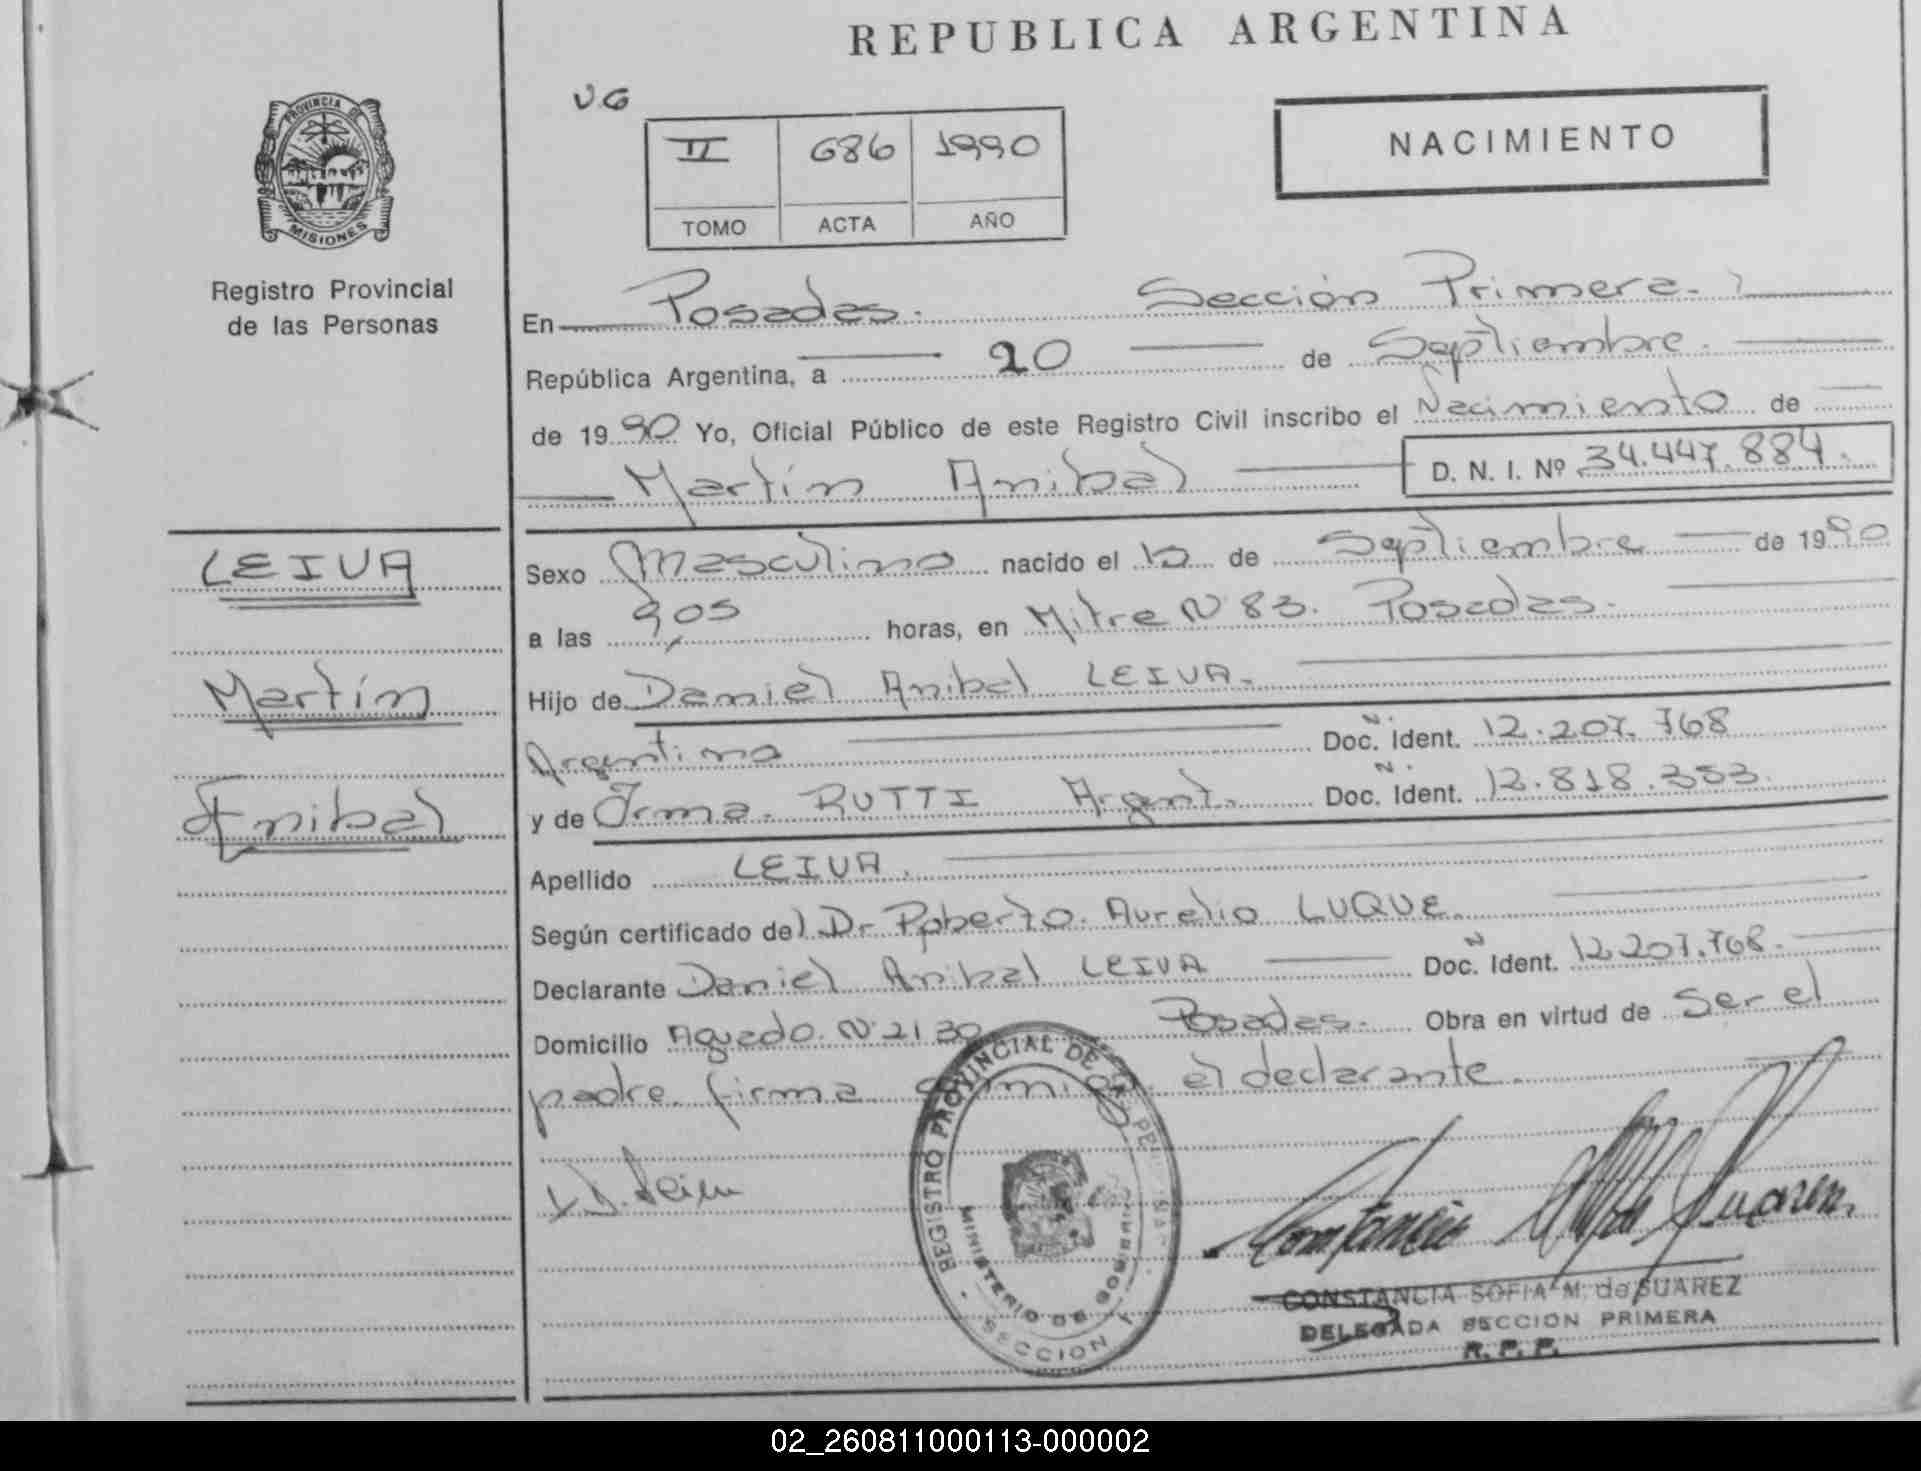 REPUBLICA ARGENTINA
V.G
II 686 1990
TOMO ACTA AÑO
NACIMIENTO
PROVINCIA DE
MISIONES
Registro Provincial
de las Personas
En Posadas. Sección Primera.
República Argentina, a 20 de Septiembre.
de 1990 Yo, Oficial Público de este Registro Civil inscribo el Nacimiento de
Martín Anibal D. N. I. Nº 34.447.884.
LEIVA
Martín
Anibal
Sexo Masculino nacido el 12 de Septiembre de 1990
a las 9,05 horas, en Mitre N° 83. Posadas.
Hijo de Daniel Anibal LEIVA.
Argentino Doc. Ident. N. 12.207.768
y de Irma. RUTTI Argent. Doc. Ident. N. 12.818.353.
Apellido LEIVA.
Según certificado del Dr Roberto. Aurelio LUQUE.
Declarante Daniel Anibal LEIVA Doc. Ident. N 12.207.768.
Domicilio Aguado. N° 2130 Posadas. Obra en virtud de Ser el
padre. firma conmigo el declarante.
D. Leiva
REGISTRO PROVINCIAL DE LAS PERSONAS
MINISTERIO DE GOBIERNO
SECCION 1
CONSTANCIA SOFIA M. de SUAREZ
DELEGADA SECCION PRIMERA
R. P. P.
02_260811000113-000002